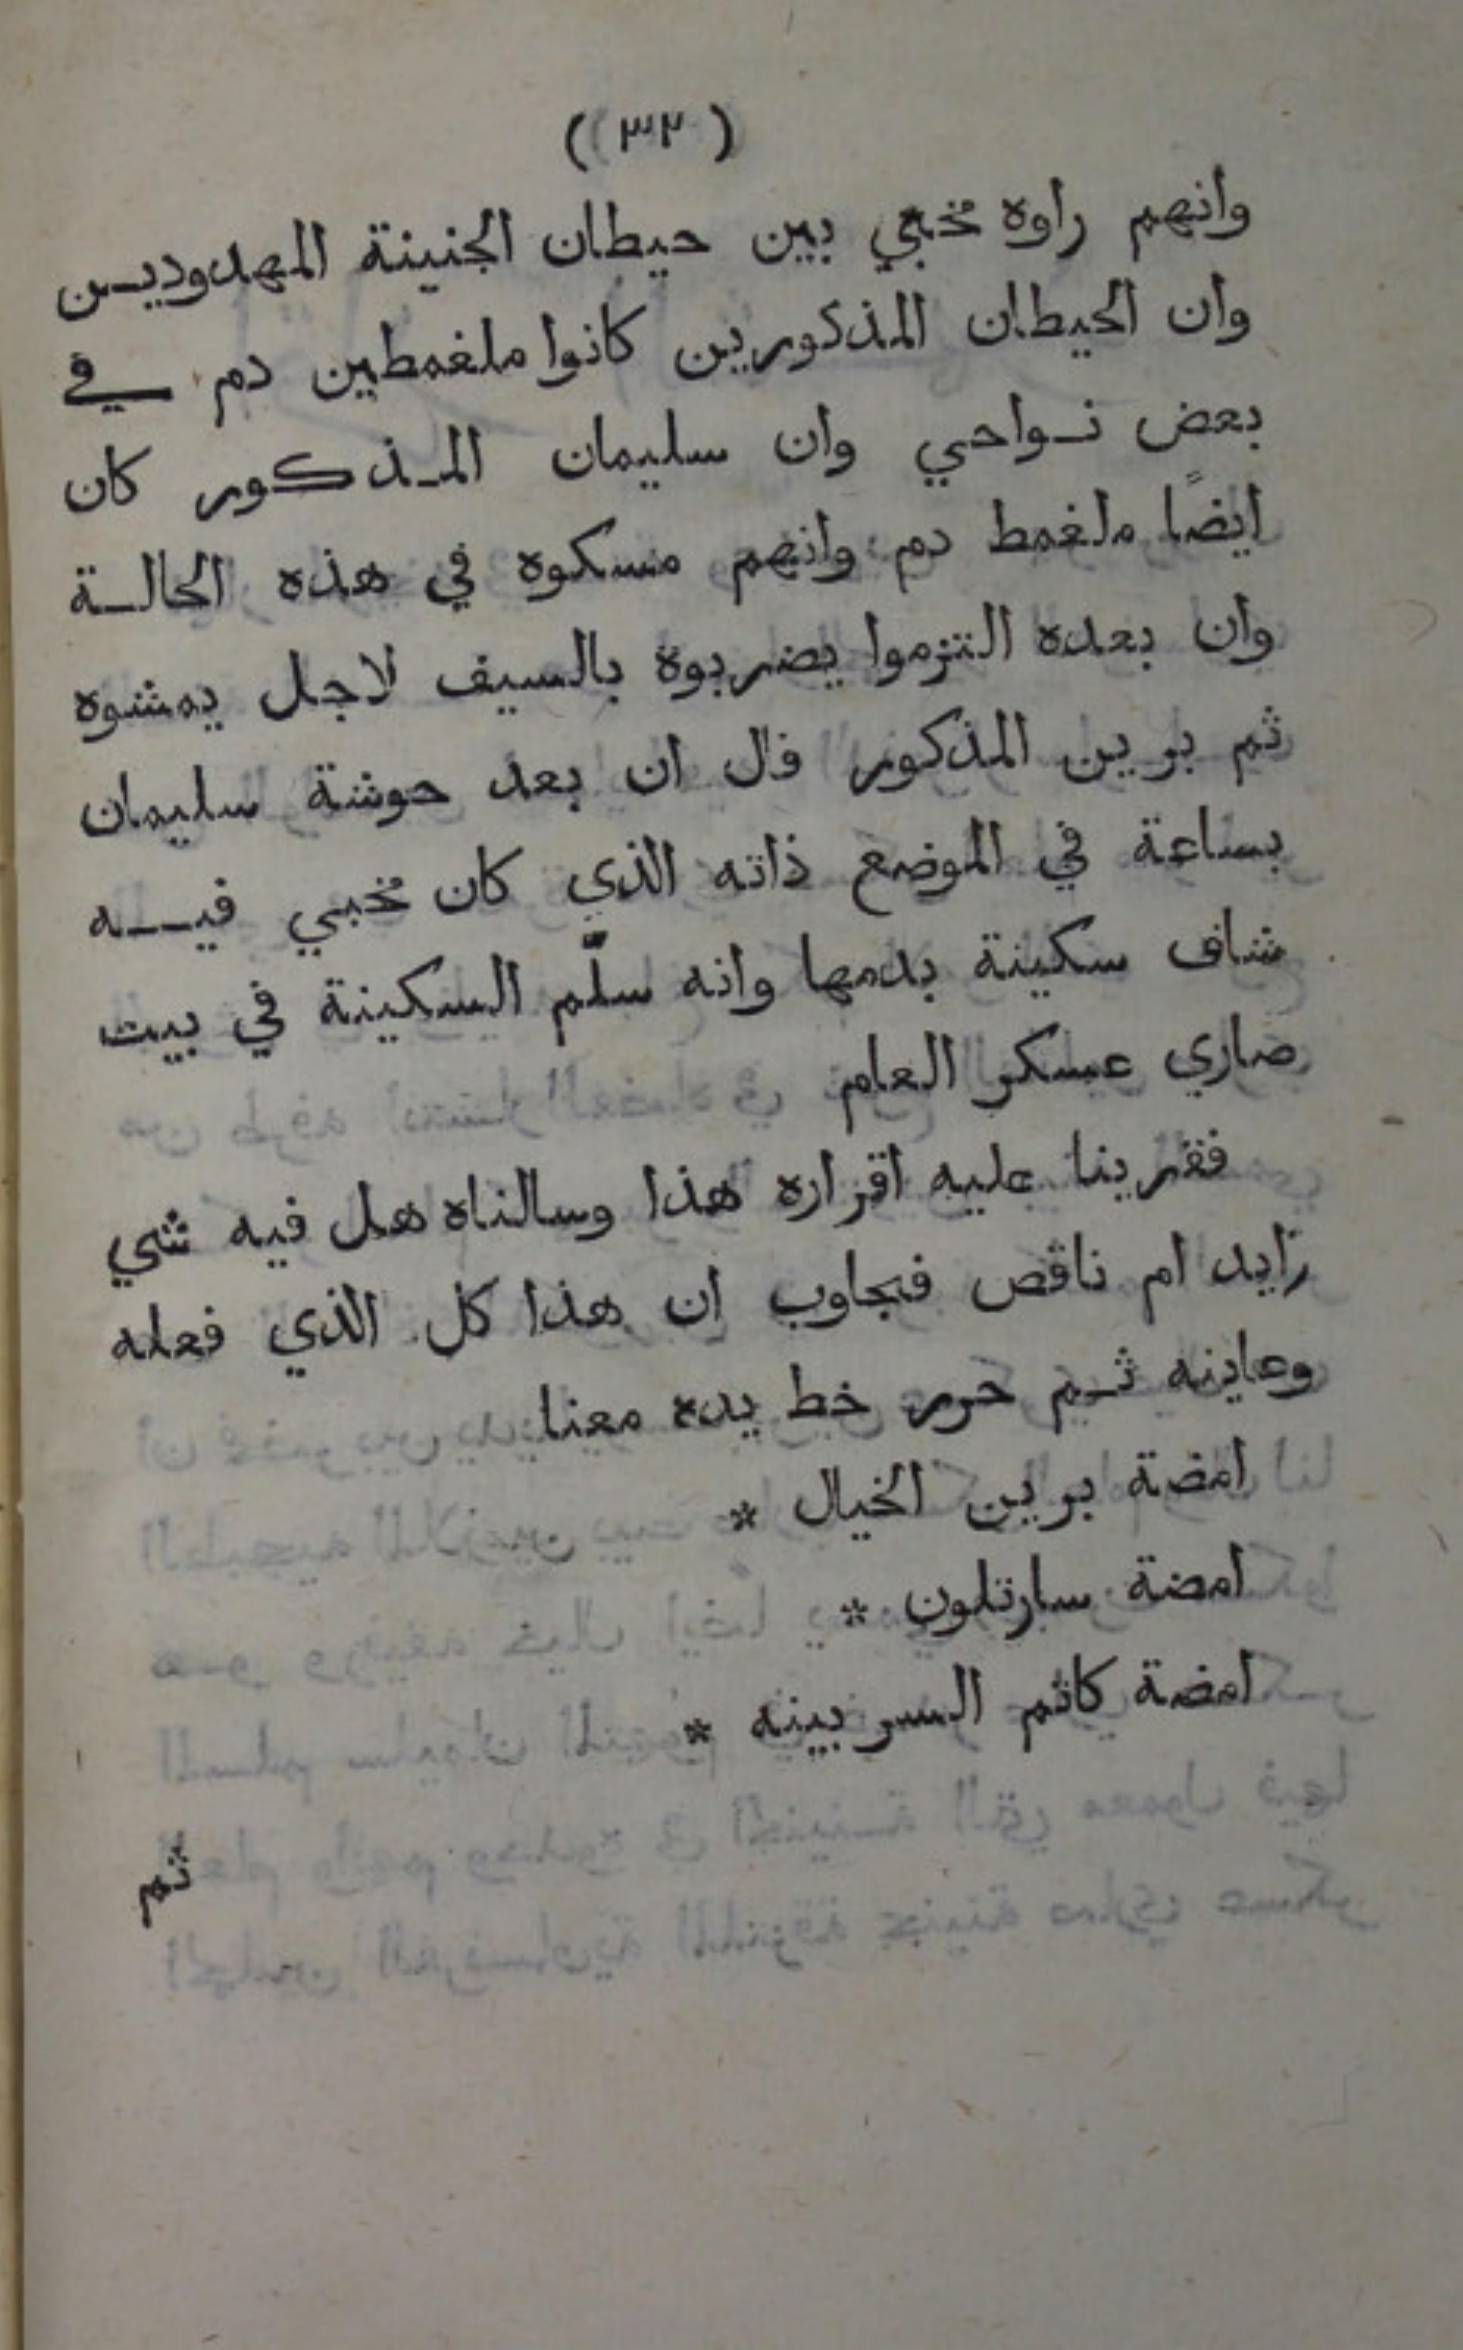 (٣٢)
وانهم راوه مخبي بين حيطان الجنينة المهدوديـن
وان الحيطان المذكورين كانوا ملغمطين دم في
بعض نـواحي وان سليمان المـذكور كان
ايضًا ملغمط دم وانهم مسكوه في هذه الحالـة
وان بعده التزموا يضربوه بالسيف لاجل يمشوه
ثم برين المذكور قال ان بعد حوشة سليمان
بساعة في الموضع ذاته الذي كان مخبي فيـه
شاف سكينة بدمها وانه سلّم السكينة في بيت
صاري عسكر العام
فقرينا عليه اقراره هذا وسالناه هل فيه شي
زايد ام ناقص فجاوب ان هذا كل الذي فعله
وعاينه ثـم حرر خط يده معنا
امضة برين الخيال *
امضة سارتلون *
امضة كاتم السر بينه *
ثم